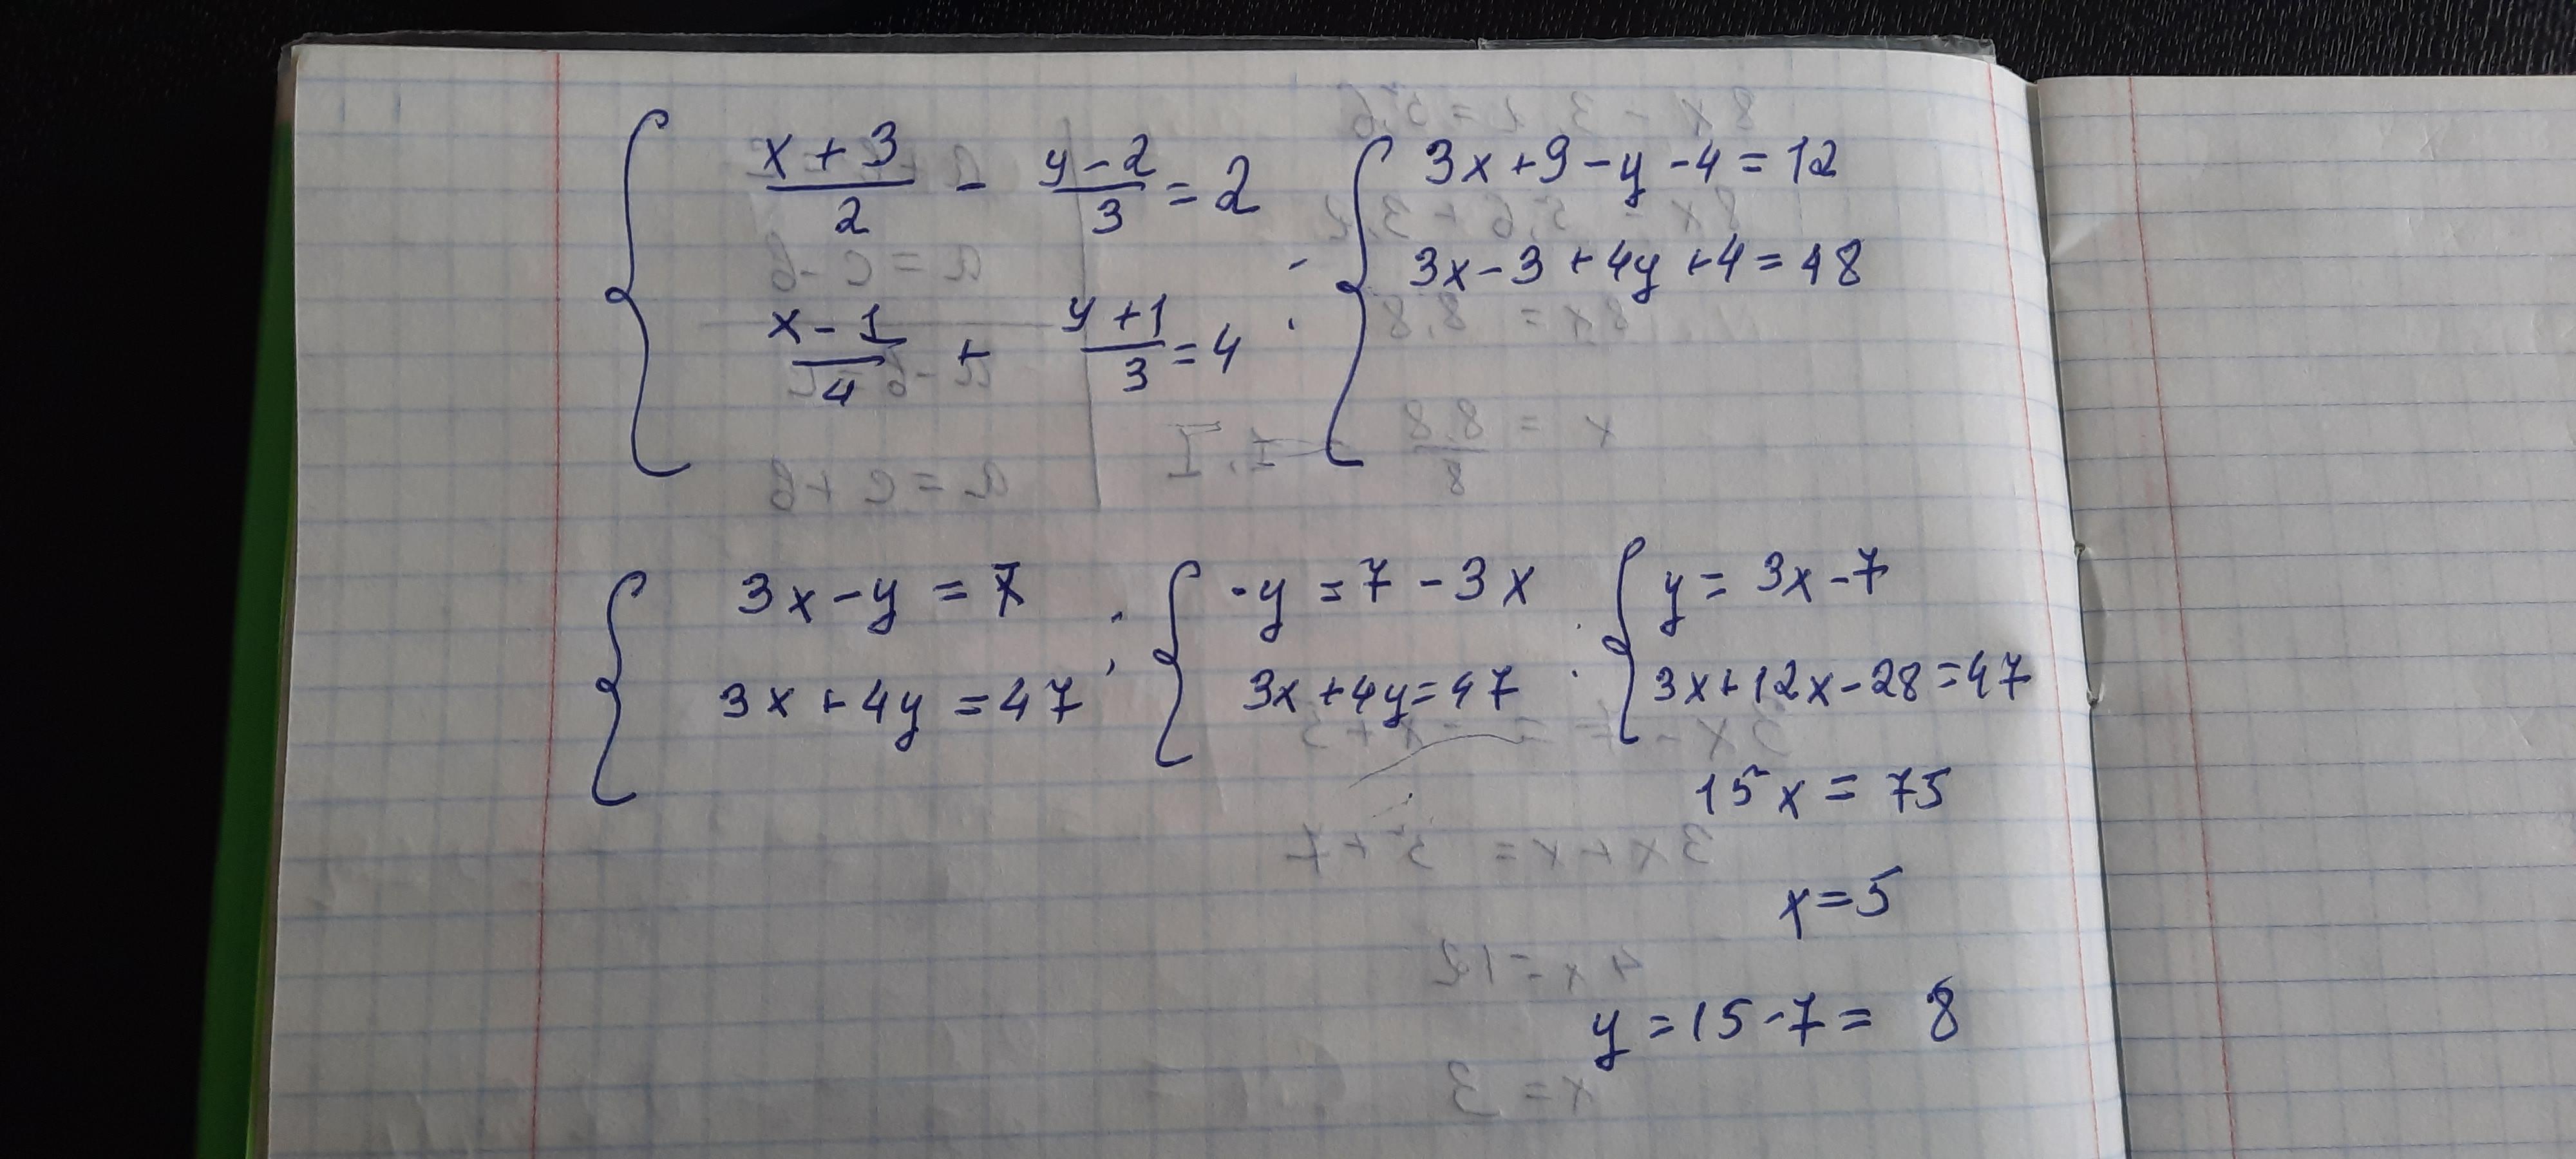 { (x+3)/2 - (y-2)/3 = 2 ; { 3x+9-y-4=12
(x-1)/4 + (y+1)/3 = 4 3x-3+4y+4=48
{ 3x-y=7 ; { -y=7-3x ; { y=3x-7
3x+4y=47 3x+4y=47 3x+12x-28=47
15x=75
x=5
y=15-7= 8